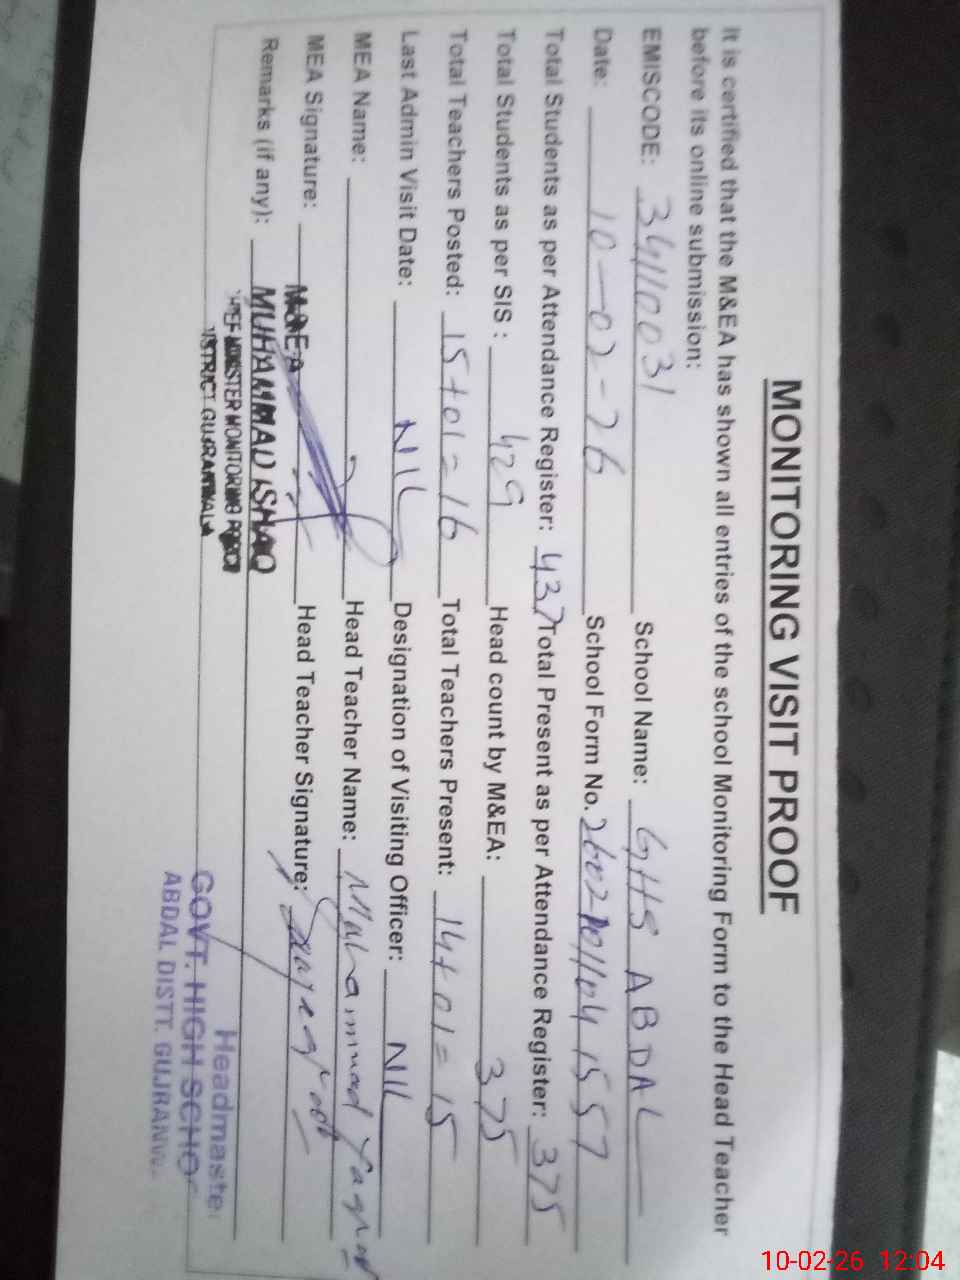 MONITORING VISIT PROOF
It is certified that the M&EA has shown all entries of the school Monitoring Form to the Head Teacher
before its online submission:
EMISCODE: 34110031 School Name: GHS ABDAL
Date: 10-02-26 School Form No. 4157
Total Students as per Attendance Register: 437 Total Present as per Attendance Register: 375
Total Students as per SIS : 429 Head count by M&EA: 375
Total Teachers Posted: 15+01=16 Total Teachers Present: 14+01=15
Last Admin Visit Date: NIL Designation of Visiting Officer: NIL
MEA Name: Head Teacher Name: Muhammad
MEA Signature: M&EA Head Teacher Signature:
Remarks (if any): MUHAMMAD ISHAQ
CHIEF MINISTER MONITORING FORCE
DISTRICT GUJRANWALA
Headmaster
GOVT. HIGH SCHO
ABDAL DISTT. GUJRANW
10-02-26 12:04